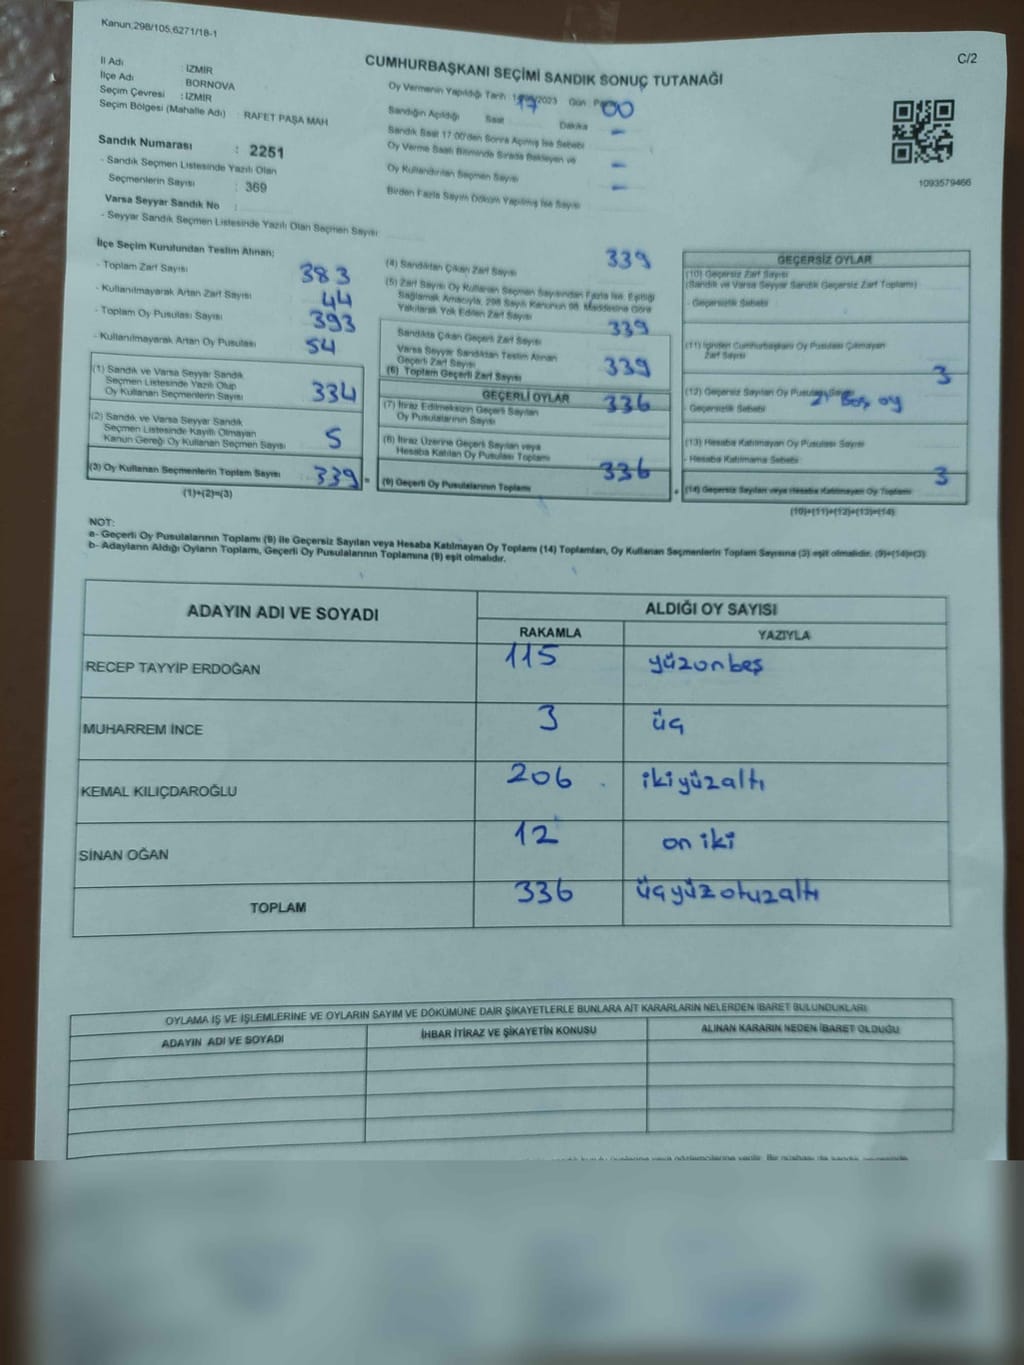 Kanun;298/105;6271/18-1
C/2
CUMHURBAŞKANI SEÇİMİ SANDIK SONUÇ TUTANAĞI
İl Adı : İZMİR
İlçe Adı : BORNOVA
Seçim Çevresi : İZMİR
Seçim Bölgesi (Mahalle Adı) : RAFET PAŞA MAH
Sandık Numarası : 2251
- Sandık Seçmen Listesinde Yazılı Olan
Seçmenlerin Sayısı : 369
Varsa Seyyar Sandık No :
- Seyyar Sandık Seçmen Listesinde Yazılı Olan Seçmen Sayısı
Oy Vermenin Yapıldığı Tarih 2023 Gün
Sandığın Açıldığı Saat 17 Dakika 00
Sandık Saat 17:00'den Sonra Açılmış İse Sebebi -
Oy Verme Saati Bitiminde Sırada Bekleyen ve
Oy Kullandırılan Seçmen Sayısı -
Birden Fazla Sayım Döküm Yapılmış İse Sayısı -
1093579466
İlçe Seçim Kurulundan Teslim Alınan;
- Toplam Zarf Sayısı 383
- Kullanılmayarak Artan Zarf Sayısı 44
- Toplam Oy Pusulası Sayısı 393
- Kullanılmayarak Artan Oy Pusulası 54
(1) Sandık ve Varsa Seyyar Sandık
Seçmen Listesinde Yazılı Olup
Oy Kullanan Seçmenlerin Sayısı 334
(2) Sandık ve Varsa Seyyar Sandık
Seçmen Listesinde Kayıtlı Olmayan
Kanun Gereği Oy Kullanan Seçmen Sayısı 5
(3) Oy Kullanan Seçmenlerin Toplam Sayısı 339
(1)+(2)=(3)
(4) Sandıktan Çıkan Zarf Sayısı 339
(5) Zarf Sayısı Oy Kullanan Seçmen Sayısından Fazla İse, Eşitliği
Sağlamak Amacıyla, 298 Sayılı Kanunun 98. Maddesine Göre
Yakılarak Yok Edilen Zarf Sayısı
Sandıkta Çıkan Geçerli Zarf Sayısı 339
Varsa Seyyar Sandıktan Teslim Alınan
Geçerli Zarf Sayısı
(6) Toplam Geçerli Zarf Sayısı 339
GEÇERLİ OYLAR
(7) İtiraz Edilmeksizin Geçerli Sayılan 336
Oy Pusulalarının Sayısı
(8) İtiraz Üzerine Geçerli Sayılan veya
Hesaba Katılan Oy Pusulası Toplamı
(9) Geçerli Oy Pusulalarının Toplamı 336
GEÇERSİZ OYLAR
(10) Geçersiz Zarf Sayısı
(Sandık ve Varsa Seyyar Sandık Geçersiz Zarf Toplamı)
- Geçersizlik Sebebi
(11) İçinden Cumhurbaşkanı Oy Pusulası Çıkmayan
Zarf Sayısı
(12) Geçersiz Sayılan Oy Pusulası Sayısı 3
- Geçersizlik Sebebi Boş oy
(13) Hesaba Katılmayan Oy Pusulası Sayısı
- Hesaba Katılmama Sebebi
(14) Geçersiz Sayılan veya Hesaba Katılmayan Oy Toplamı 3
(10)+(11)+(12)+(13)=(14)
NOT:
a- Geçerli Oy Pusulalarının Toplamı (9) ile Geçersiz Sayılan veya Hesaba Katılmayan Oy Toplamı (14) Toplamları, Oy Kullanan Seçmenlerin Toplam Sayısına (3) eşit olmalıdır. (9)+(14)=(3)
b- Adayların Aldığı Oyların Toplamı, Geçerli Oy Pusulalarının Toplamına (9) eşit olmalıdır.
ADAYIN ADI VE SOYADI ALDIĞI OY SAYISI
RAKAMLA YAZIYLA
RECEP TAYYİP ERDOĞAN 115 yüzonbeş
MUHARREM İNCE 3 üç
KEMAL KILIÇDAROĞLU 206 ikiyüzaltı
SİNAN OĞAN 12 on iki
TOPLAM 336 üçyüzotuzaltı
OYLAMA İŞ VE İŞLEMLERİNE VE OYLARIN SAYIM VE DÖKÜMÜNE DAİR ŞİKAYETLERLE BUNLARA AİT KARARLARIN NELERDEN İBARET BULUNDUKLARI
ADAYIN ADI VE SOYADI İHBAR İTİRAZ VE ŞİKAYETİN KONUSU ALINAN KARARIN NEDEN İBARET OLDUĞU